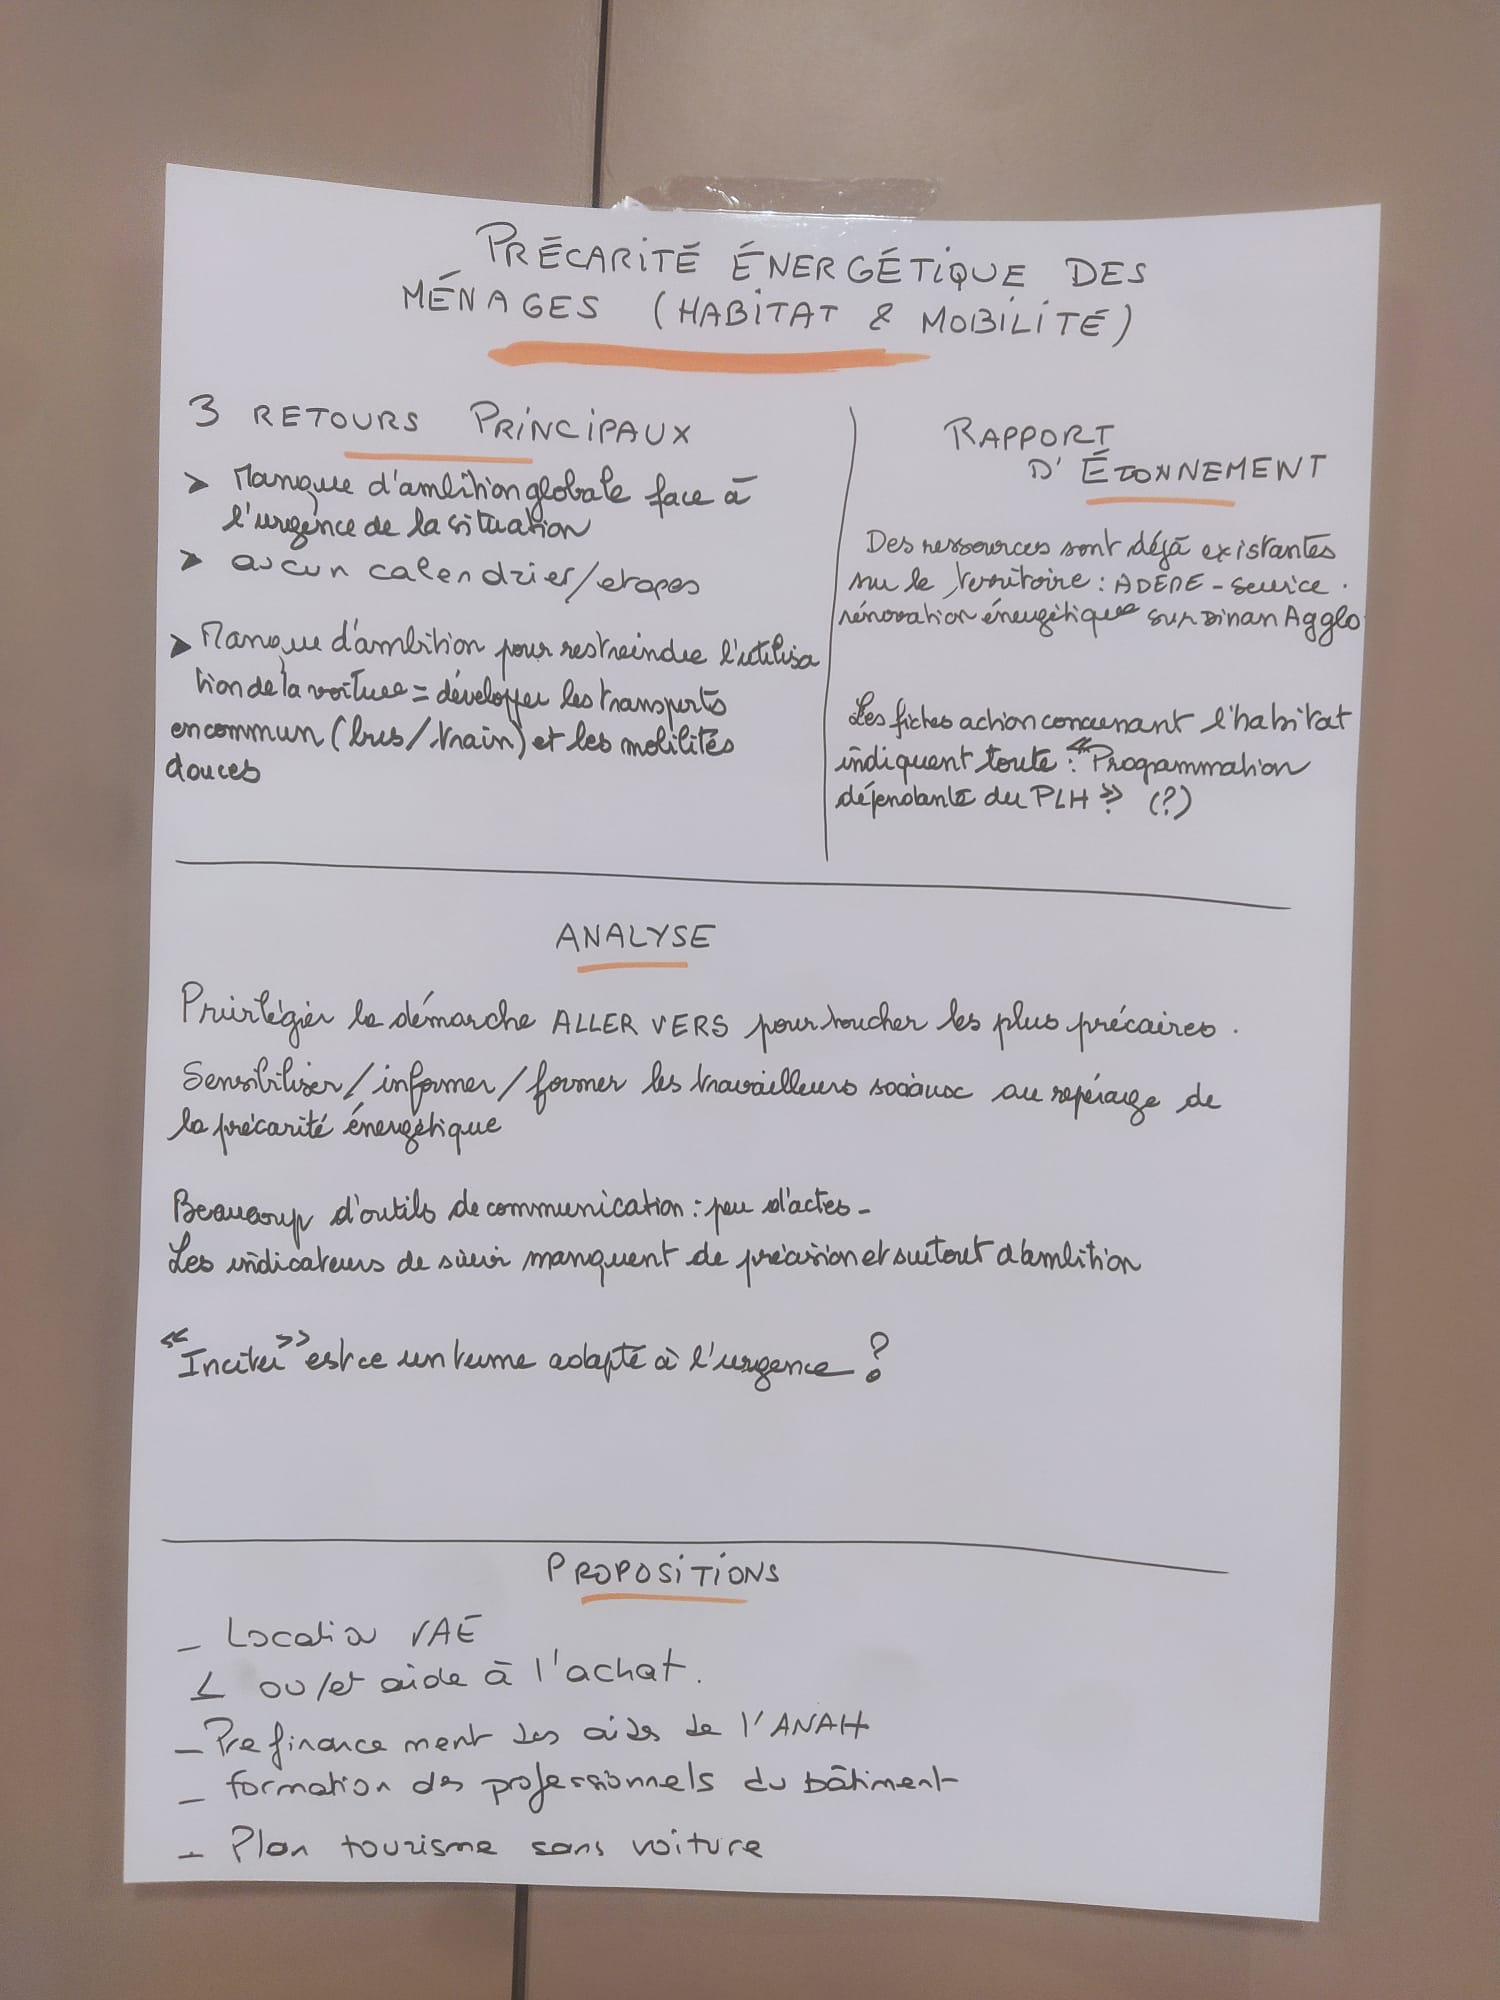 PRÉCARITÉ ÉNERGÉTIQUE DES
MÉNAGES (HABITAT & MOBILITÉ)
3 RETOURS PRINCIPAUX
> Manque d'ambition globale face à
l'urgence de la situation
> aucun calendrier/etapes
> Manque d'ambition pour restreindre l'utilisa
tion de la voiture = développer les transports
en commun (bus/train) et les mobilités
douces
RAPPORT
D'ÉTONNEMENT
Des ressources sont déjà existantes
sur le territoire : ADEME - service
rénovation énergétique sur Dinan Agglo
Les fiches action concernant l'habitat
indiquent toute : "Programmation
dépendante du PLH" (?)
ANALYSE
Privilégier la démarche ALLER VERS pour toucher les plus précaires.
Sensibiliser/informer/former les travailleurs sociaux au repérage de
la précarité énergétique
Beaucoup d'outils de communication : peu d'actes -
Les indicateurs de suivi manquent de précision et surtout d'ambition
"Inciter" est ce un terme adapté à l'urgence ?
PROPOSITIONS
- Location VAE
ou/et aide à l'achat.
- Prefinancement des aides de l'ANAH
- formation des professionnels du bâtiment
- Plan tourisme sans voiture